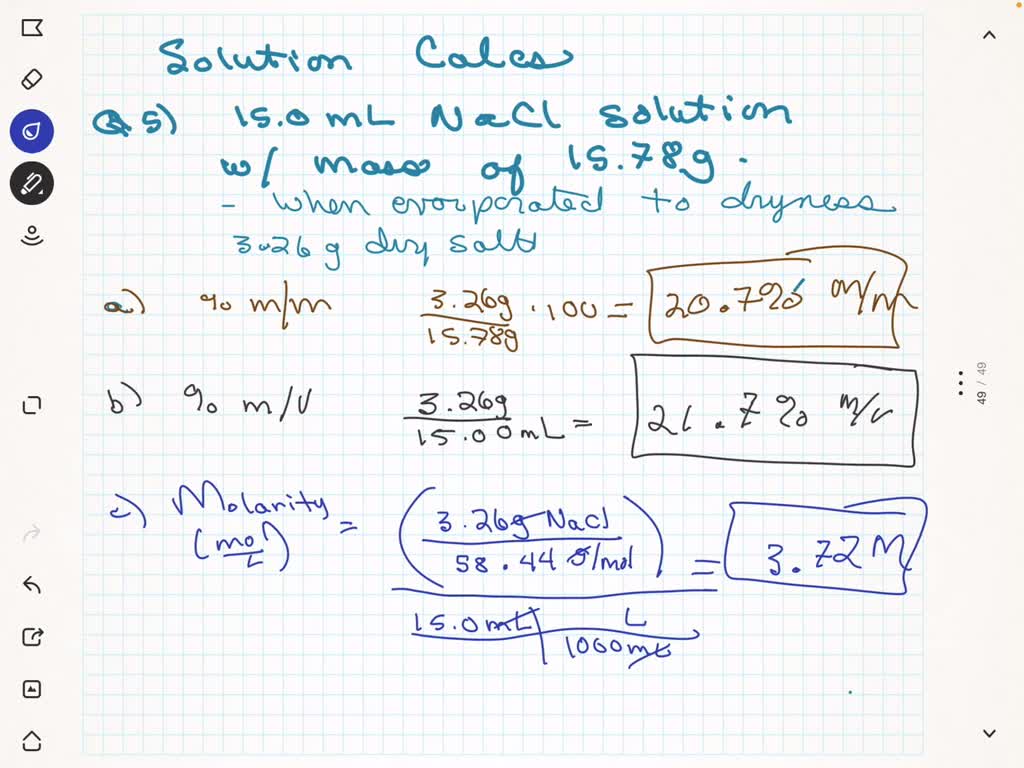 Solution Calcs
Q5) 15.0 mL NaCl solution
w/ mass of 15.78g.
- when evorporated to dryness
3.26 g dry salt
a) % m/m 3.26g / 15.78g · 100 = 20.7% m/m
b) % m/v 3.26g / 15.00 mL = 21.7% m/v
c) Molarity (mol/L) = (3.26g NaCl / 58.44 g/mol) / 15.0 mL | L / 1000 mL = 3.72 M
49 / 49